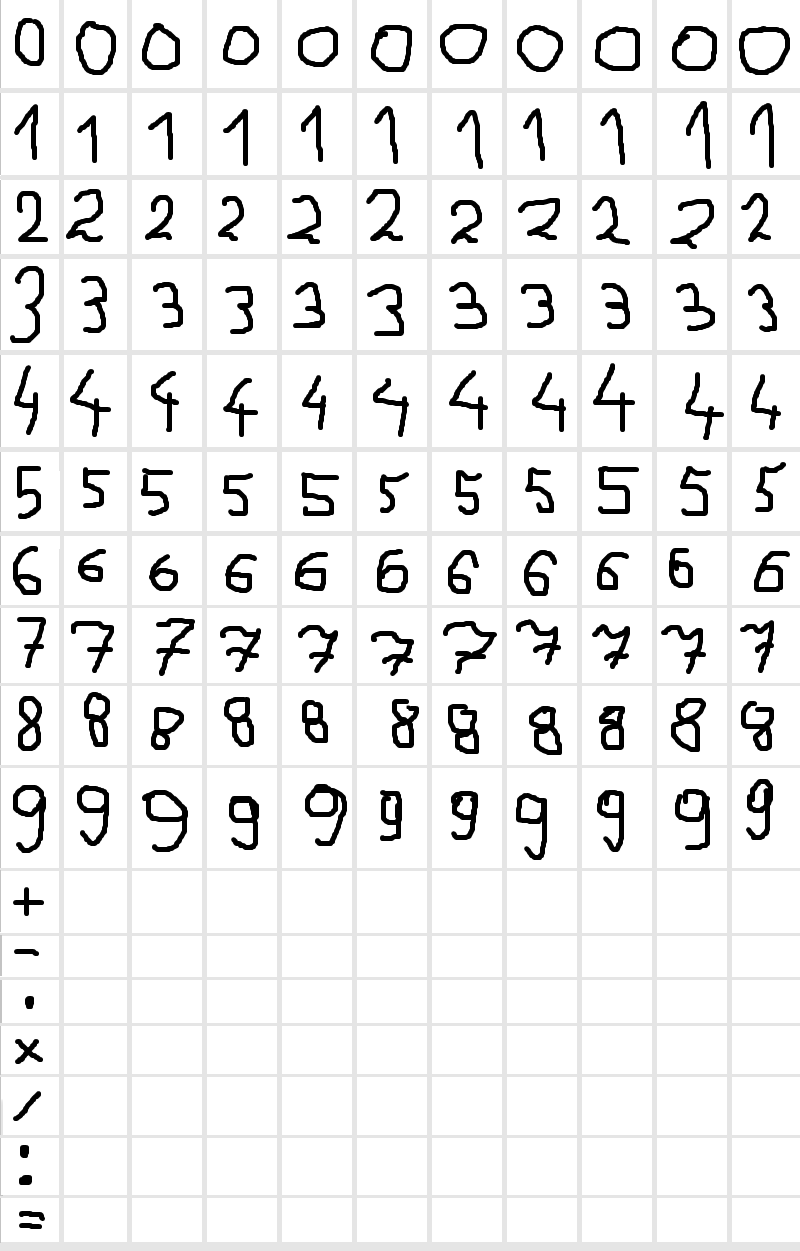 0 0 0 0 0 0 0 0 0 0 0
1 1 1 1 1 1 1 1 1 1 1
2 2 2 2 2 2 2 2 2 2 2
3 3 3 3 3 3 3 3 3 3 3
4 4 4 4 4 4 4 4 4 4 4
5 5 5 5 5 5 5 5 5 5 5
6 6 6 6 6 6 6 6 6 6 6
7 7 7 7 7 7 7 7 7 7 7
8 8 8 8 8 8 8 8 8 8 8
9 9 9 9 9 9 9 9 9 9 9
+
-
·
×
/
:
=